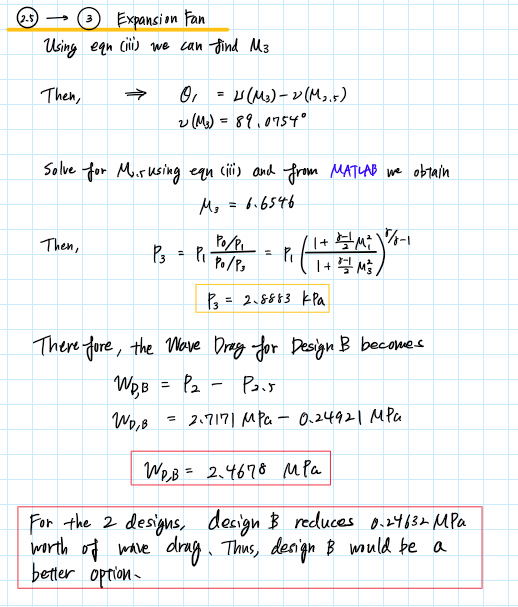 2.5 → 3 Expansion Fan
Using eqn (iii) we can find M₃
Then, ⇒ θ₁ = ν(M₃) - ν(M₂.₅)
ν(M₃) = 89.0754°
Solve for M₁.₅ using eqn (iii) and from MATLAB we obtain
M₃ = 6.6546
Then, P₃ = P₁ (P₀/P₁)/(P₀/P₃) = P₁ ((1 + (γ-1)/2 M₁²)/(1 + (γ-1)/2 M₃²))^(γ/γ-1)
P₃ = 2.8883 kPa
Therefore, the Wave Drag for Design B becomes
W_D,B = P₂ - P₂.₅
W_D,B = 2.7171 MPa - 0.24921 MPa
W_D,B = 2.4678 MPa
For the 2 designs, design B reduces 0.24632 MPa
worth of wave drag. Thus, design B would be a
better option.